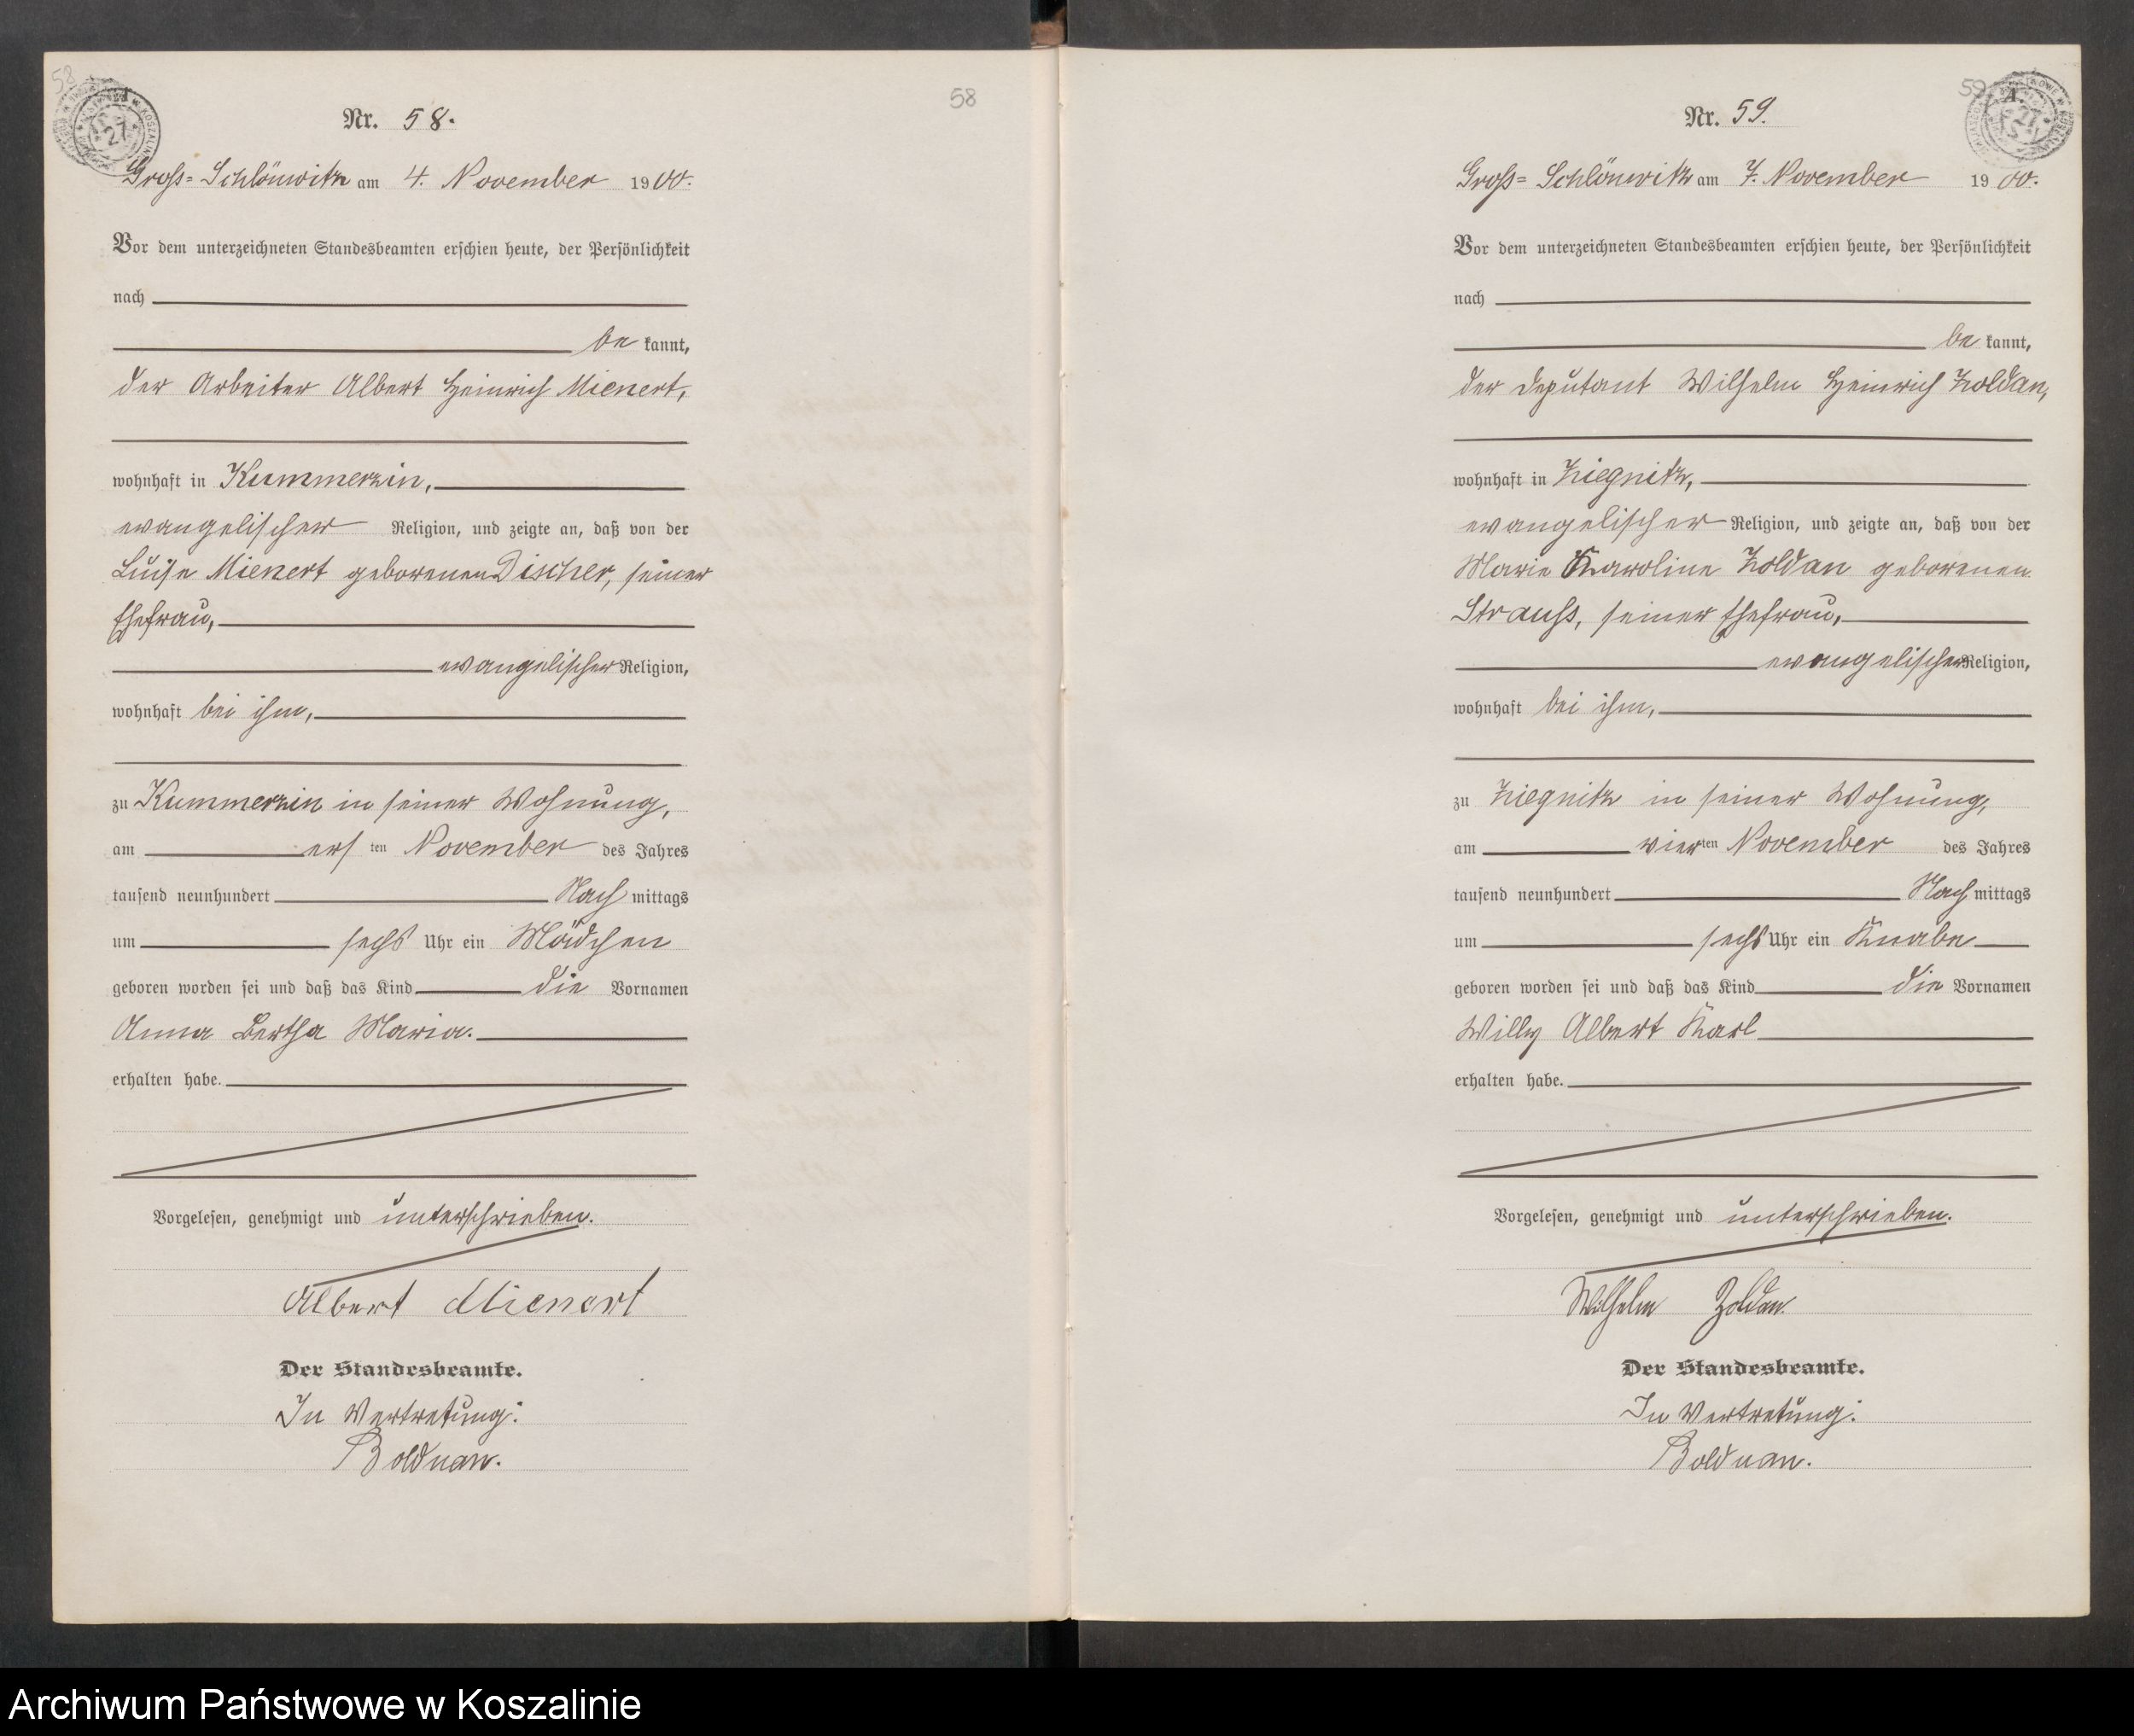 58
58
Nr. 58.
Gross-Schlönwitz am 4. November 1900.
Vor dem unterzeichneten Standesbeamten erschien heute, der Persönlichkeit
nach
be kannt,
der Arbeiter Albert Heinrich Mienert,
wohnhaft in Kummerzin,
evangelischer Religion, und zeigte an, daß von der
Luise Mienert geborenen Discher, seiner
Ehefrau,
evangelischer Religion,
wohnhaft bei ihm,
zu Kummerzin in seiner Wohnung,
am ers ten November des Jahres
tausend neunhundert Nach mittags
um sechs Uhr ein Mädchen
geboren worden sei und daß das Kind die Vornamen
Anna Bertha Maria.
erhalten habe.
Vorgelesen, genehmigt und unterschrieben.
Albert Mienert
Der Standesbeamte.
In Vertretung:
Bolduan.
59
A.
Nr. 59.
Gross-Schlönwitz am 7. November 1900.
Vor dem unterzeichneten Standesbeamten erschien heute, der Persönlichkeit
nach
be kannt,
der Deputant Wilhelm Heinrich Zoldan,
wohnhaft in Ziegnitz,
evangelischer Religion, und zeigte an, daß von der
Marie Karoline Zoldan geborenen
Strauss, seiner Ehefrau,
evangelischer Religion,
wohnhaft bei ihm,
zu Ziegnitz in seiner Wohnung,
am vier ten November des Jahres
tausend neunhundert Nach mittags
um sechs Uhr ein Knabe
geboren worden sei und daß das Kind die Vornamen
Willy Albert Karl
erhalten habe.
Vorgelesen, genehmigt und unterschrieben.
Wilhelm Zoldan
Der Standesbeamte.
In Vertretung:
Bolduan.
Archiwum Państwowe w Koszalinie